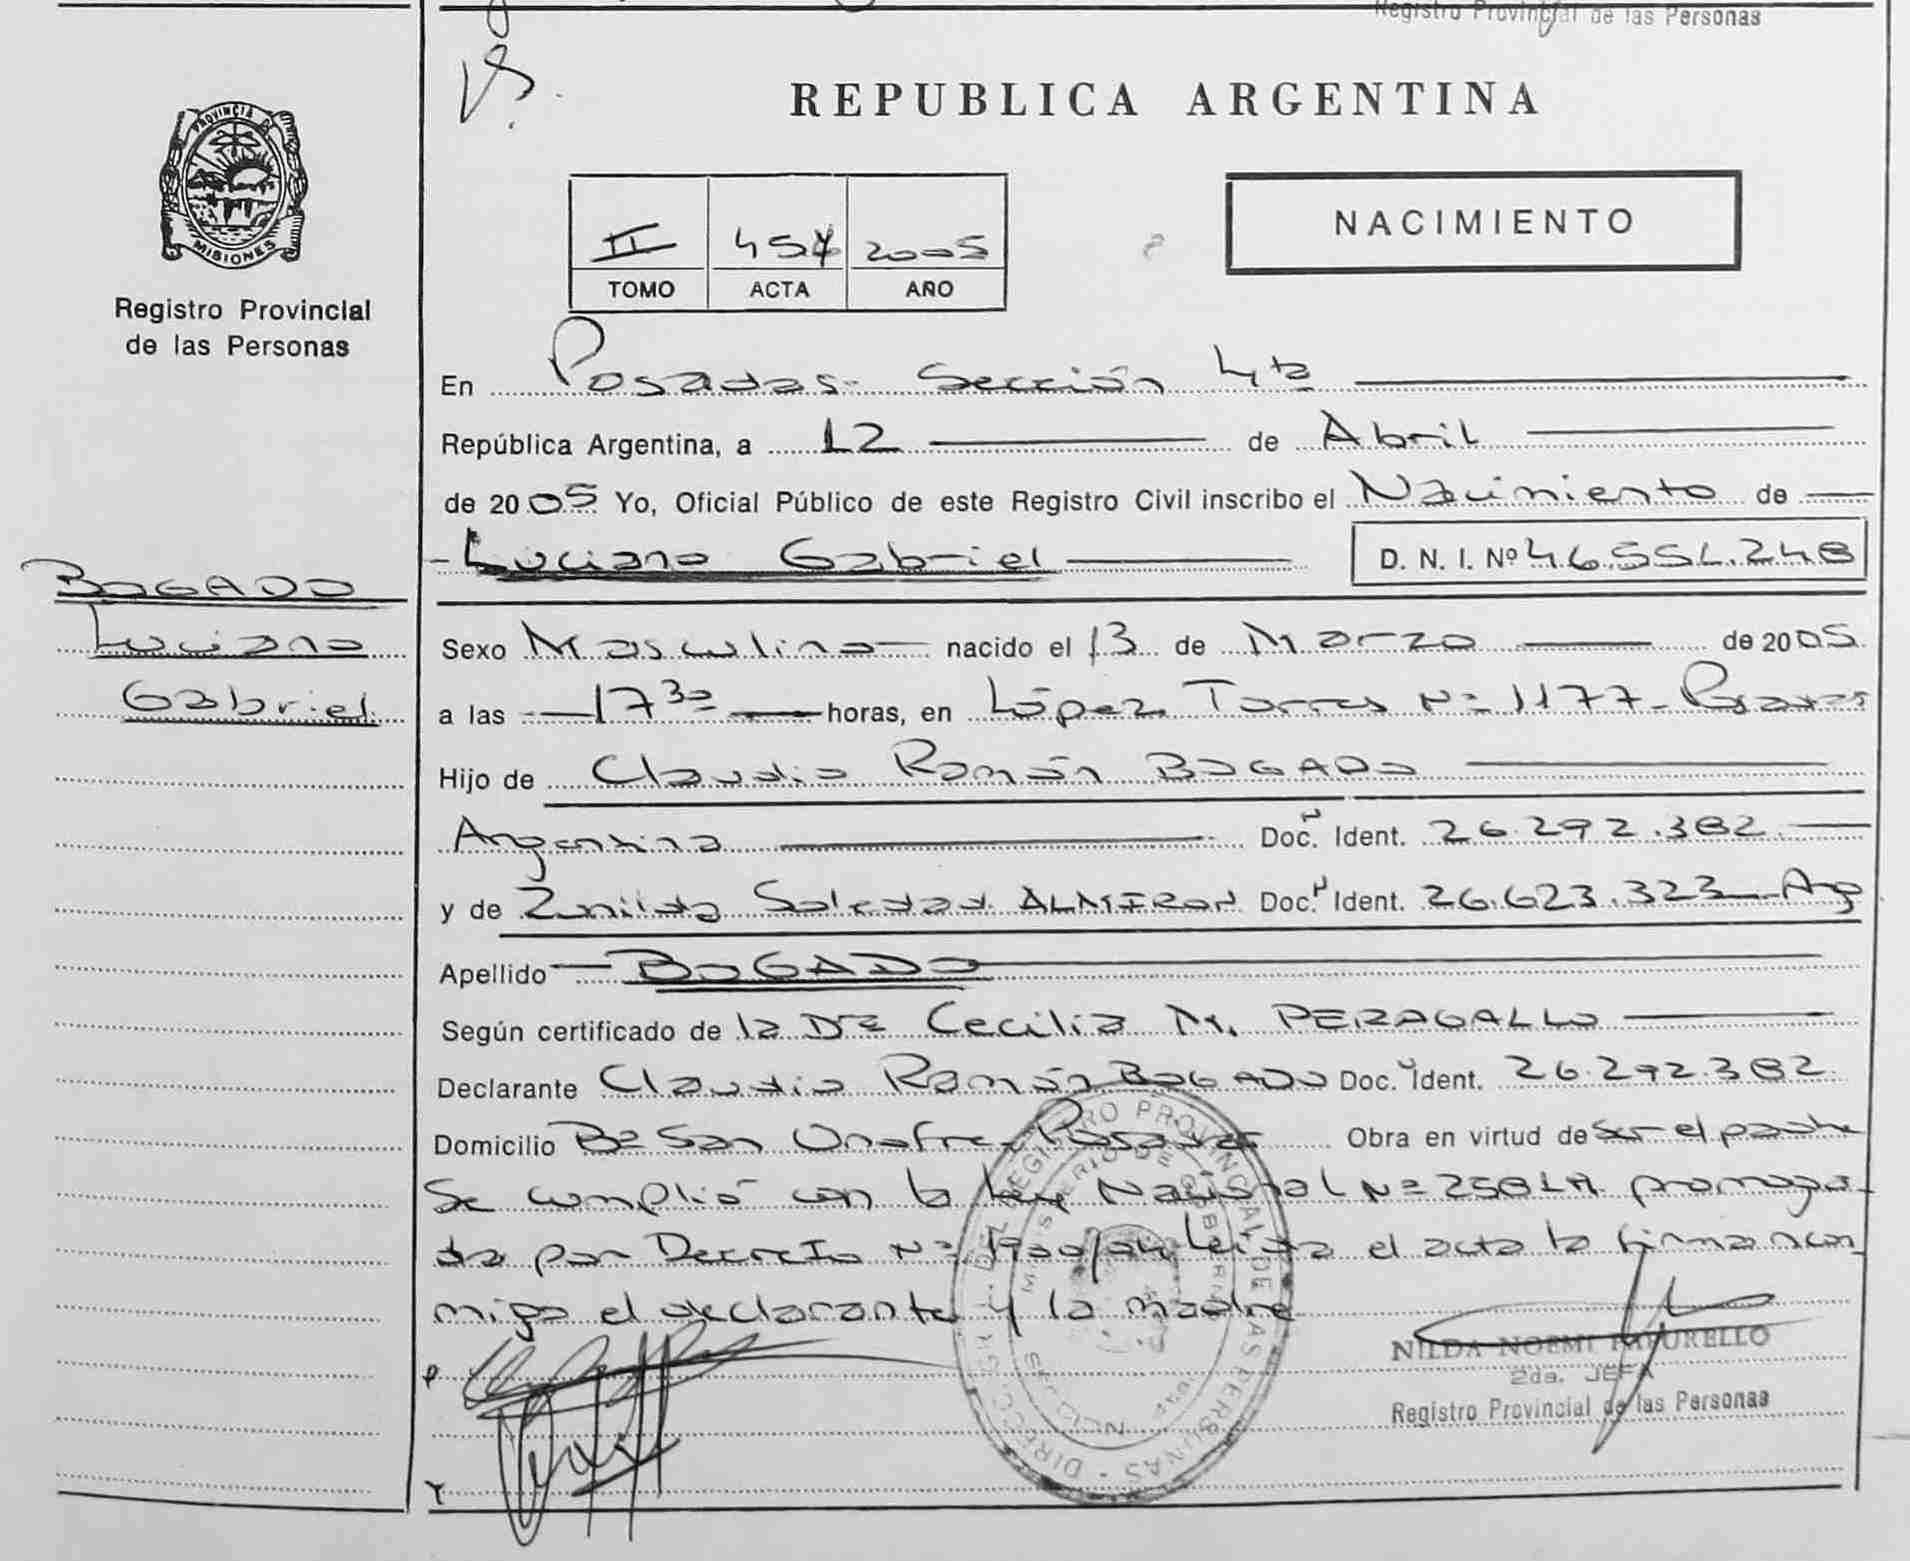 Registro Provincial de las Personas
REPUBLICA ARGENTINA
PROVINCIA DE
MISIONES
Registro Provincial
de las Personas
NACIMIENTO
II 457 2005
TOMO ACTA AÑO
En Posadas- Sección 4ta
República Argentina, a 12 de Abril
de 2005 Yo, Oficial Público de este Registro Civil inscribo el Nacimiento de
Luciano Gabriel D. N. I. Nº 46.551.248
BOGADO
Luciano
Gabriel
Sexo Masculino nacido el 13 de Marzo de 2005
a las 17 30 horas, en López Torres Nº 1177- Posadas
Hijo de Claudio Ramón BOGADO
Argentina Doc. Ident. 26.292.382
y de Zunilda Soledad ALMIRON Doc. Ident. 26.623.323 Arg
Apellido BOGADO
Según certificado de la Dra Cecilia M. PERAGALLO
Declarante Claudio Ramón BOGADO Doc. Ident. 26.292.382
Domicilio Bº San Onofre- Posadas Obra en virtud de ser el padre
Se cumplió con la Ley Nacional Nº 25814. promulga-
da por Decreto Nº 1900/04 Leída el acta la firman con
migo el declarante y la madre
NILDA NOEMI
2da. JEFA
Registro Provincial de las Personas